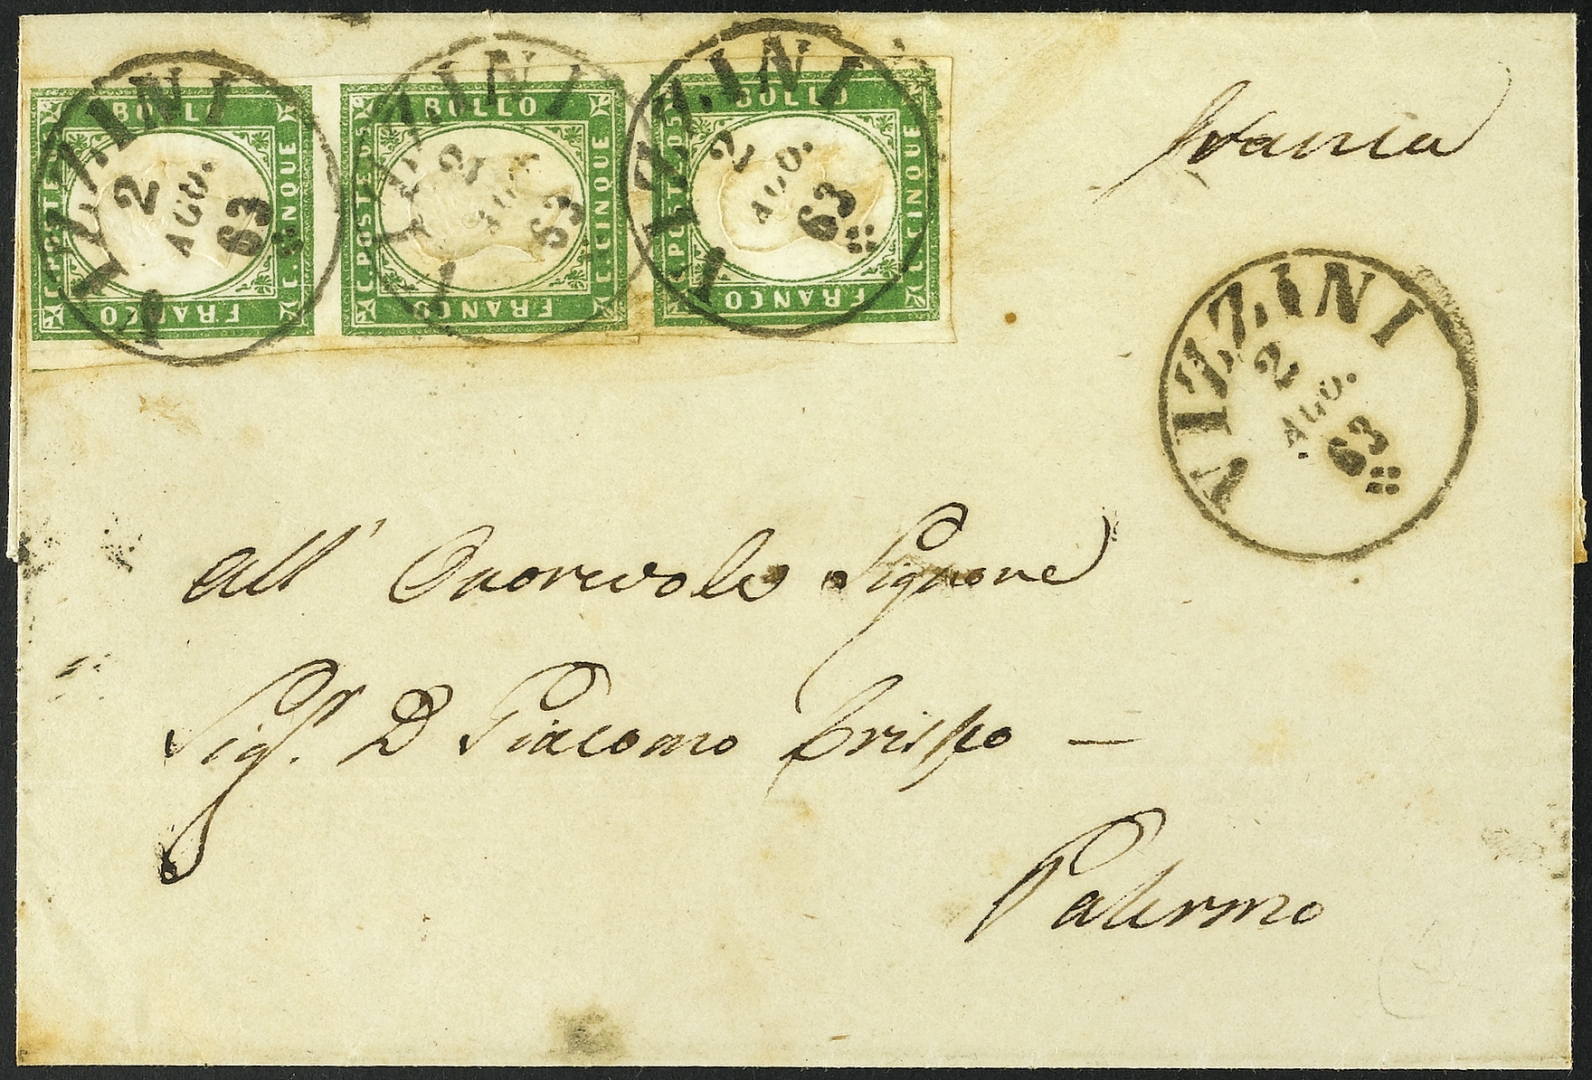 BOLLO
C. POSTE
C. CINQUE
FRANCO
VIZZINI
2
AGO.
63
BOLLO
C. POSTE
C. CINQUE
FRANCO
VIZZINI
2
AGO.
63
BOLLO
C. POSTE
C. CINQUE
FRANCO
VIZZINI
2
AGO.
63
franca
VIZZINI
2
AGO.
63
All' Onorevole Signore
Sigr. D Giacomo Crispo —
Palermo